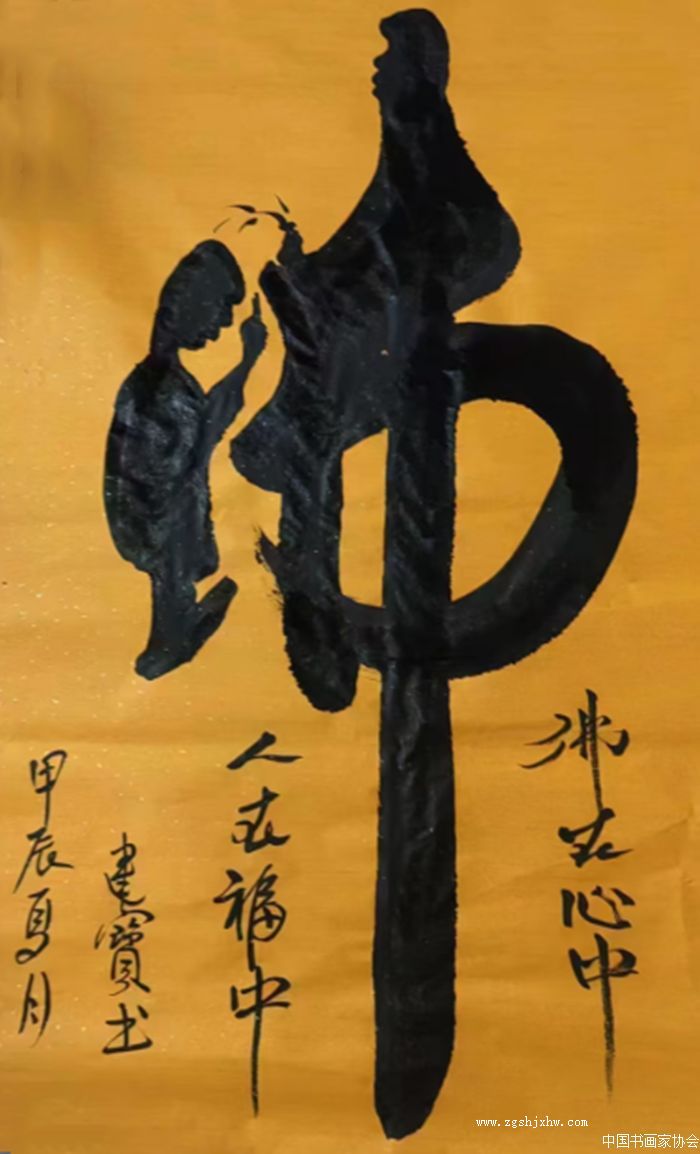 佛
佛在心中
人在福中
建寶书
甲辰夏月
www.zgshjxhw.com
中国书画家协会